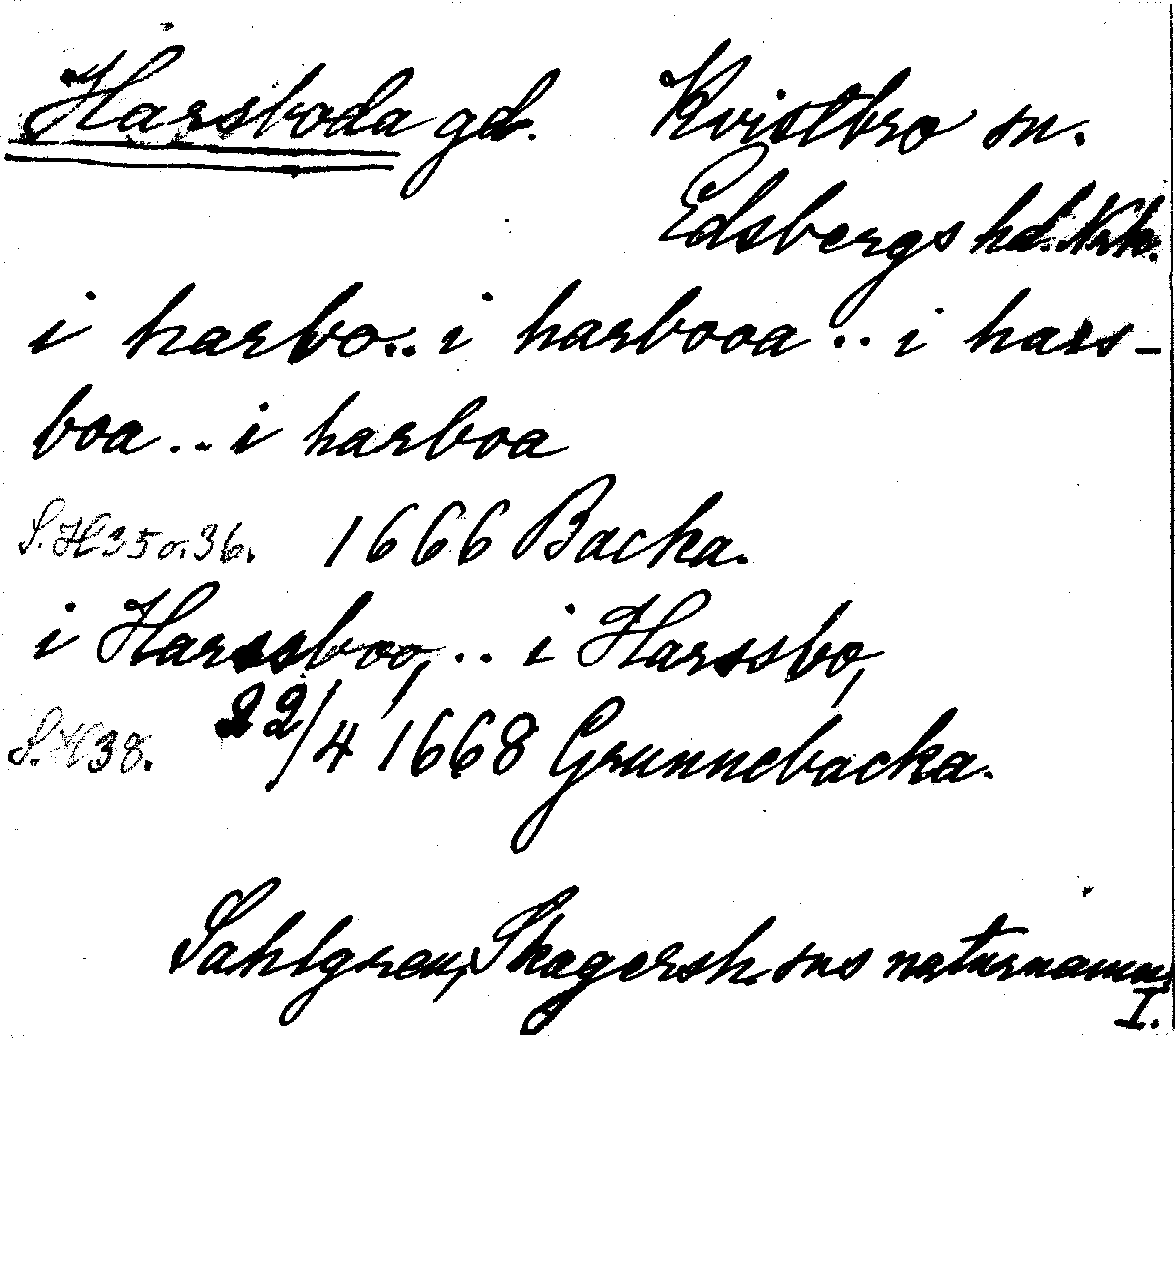 Harsboda gd. Kvistbro sn.
Edsbergs hd. Nrk.
i harbo.. i harbooa .. i hars-
boa .. i harboa
S. H 35 o. 36. 1666 Backa.
i Harssboo, .. i Harssbo,
S. H 38. 22/4 1668 Grunnebacka.
Sahlgren, Skagersh. sns naturnamn,
I.